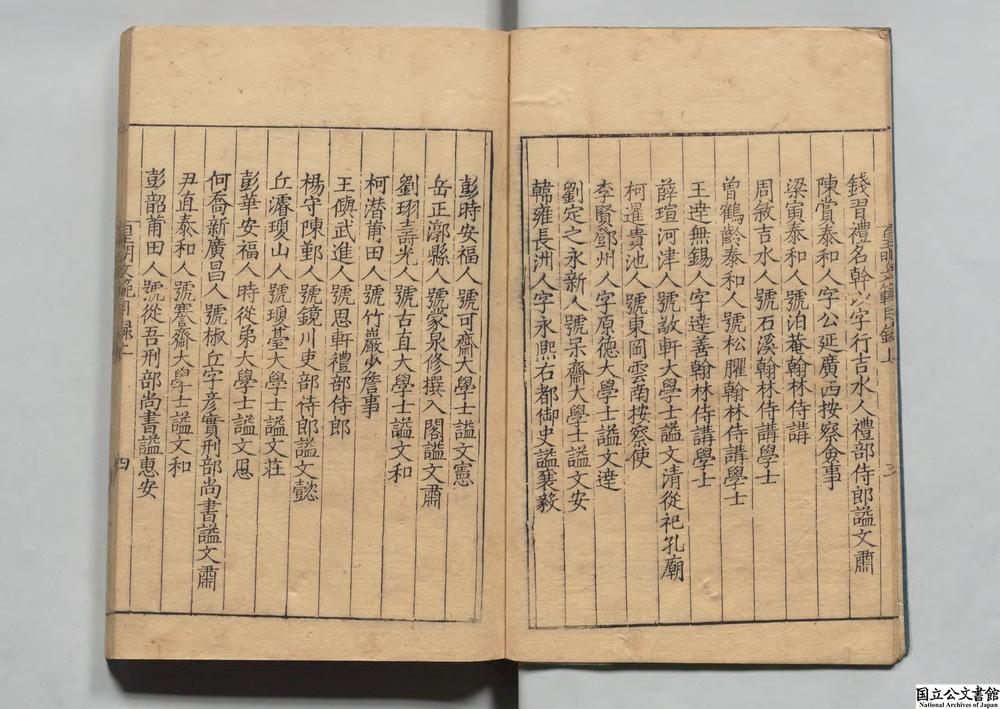 錢習禮名幹以字行吉水人禮部侍郎謚文肅
陳賞泰和人字公延廣西按察僉事
梁寅泰和人號泊菴翰林侍講
周敏吉水人號石溪翰林侍講學士
曾鶴齡泰和人號松臞翰林侍講學士
王達無錫人字達善翰林侍講學士
薛瑄河津人號敬軒大學士謚文清從祀孔廟
柯暹貴池人號東岡雲南按察使
李賢鄧州人字原德大學士謚文達
劉定之永新人號呆齋大學士謚文安
韓雍長洲人字永熙右都御史謚襄毅
彭時安福人號可齋大學士謚文憲
岳正漷縣人號蒙泉修撰入閣謚文肅
劉珝壽光人號古直大學士謚文和
柯潛莆田人號竹巖少詹事
王㒜武進人號思軒禮部侍郎
楊守陳鄞人號鏡川吏部侍郎謚文懿
丘濬瓊山人號瓊臺大學士謚文莊
彭華安福人時從弟大學士謚文思
何喬新廣昌人號椒丘字彥實刑部尚書謚文肅
尹直泰和人號謇齋大學士謚文和
彭韶莆田人號從吾刑部尚書謚惠安
四
国立公文書館
National Archives of Japan